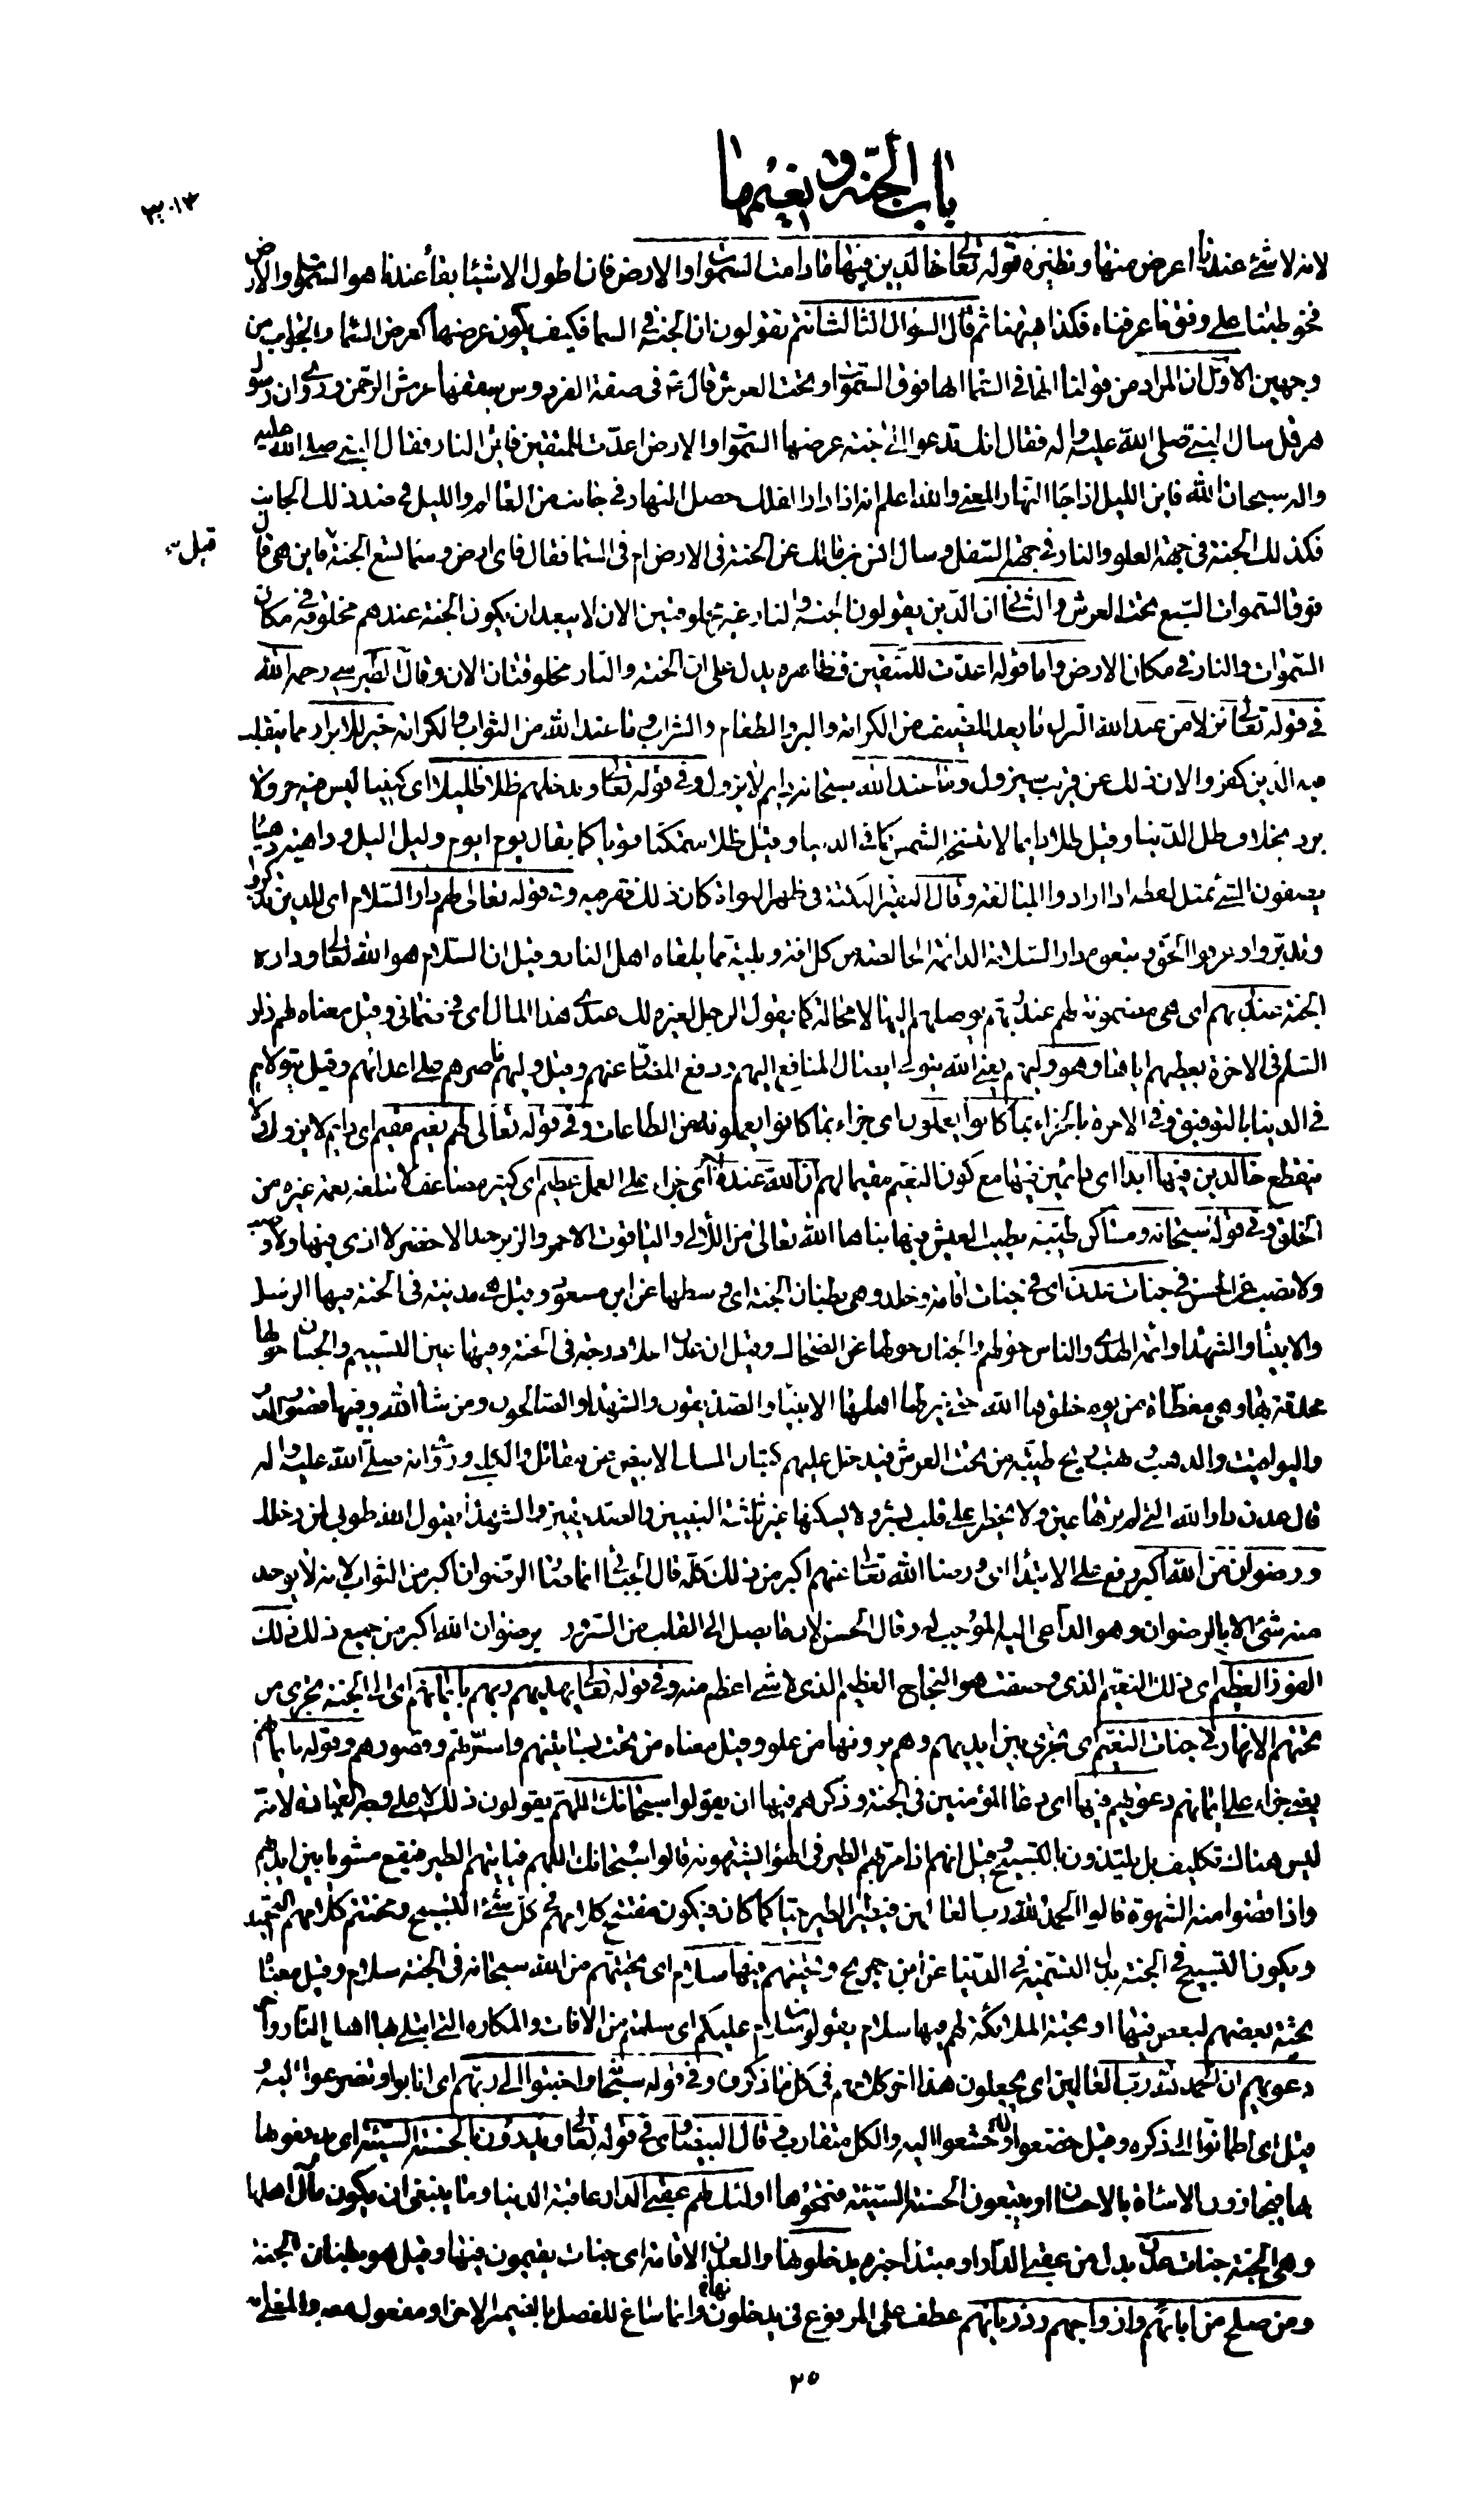 باب الجنة ونعيمها
لانه لا شئ عندنا اعرض منها ونظيره قوله تعالى خالدين فيها ما دامت السموات والارض فان اطول الاشياء بقاء عندنا هو السموات والارض
فخوطبنا على وفق ما عرفناه فكذا هيهنا ثم قال السؤال الثالث انتم تقولون ان الجنة في السماء فكيف يكون عرضها كعرض السماء والجواب من
وجهين الاول ان المراد من قولنا انها في السماء انها فوق السموات وتحت العرش قال في صفة الفردوس سقفها عرش الرحمن وروى ان رسول
هرقل سال النبي صلى الله عليه واله فقال انك تدعو الى جنة عرضها السموات والارض اعدت للمتقين فاين النار فقال النبي صلى الله عليه
واله سبحان الله فاين الليل اذا جاء النهار والمعنى والله اعلم انه اذا دار الفلك حصل النهار في جانب من العالم والليل في ضد ذلك الجانب
فكذلك الجنة في جهة العلو والنار في جهة السفل وسال انس بن مالك عن الجنة في الارض ام في السماء فقال فاى ارض وسماء تسع الجنة قيل فاين هي قال
فوق السموات السبع تحت العرش والثاني ان الذين يقولون الجنة والنار غير مخلوقتين الان لا يبعد ان يكون الجنة عندهم مخلوقة في مكان
السموات والنار في مكان الارض واما قوله اعدت للمتقين فظاهره يدل على ان الجنة والنار مخلوقتان الان وقال الطبرسي رحمه الله
في قوله تعالى نزلا من عند الله النزل ما يعد للضيف من الكرامة والبر والطعام والشراب وما عند الله من الثواب والكرامة خير للابرار مما يتقلب
فيه الذين كفروا لان ذلك عن قريب سيزول وما عند الله سبحانه دايم لا يزول وفي قوله تعالى وندخلهم ظلا ظليلا اى كنينا ليس فيه حر ولا
برد بخلاف ظل الدنيا وقيل ظلا دايما لا تنسخه الشمس كما في الدنيا وقيل ظلا متمكنا قويا كما يقال يوم ايوم وليل اليل وداهية دهياء
يصفون الشئ بمثل لفظه اذا ارادوا المبالغة وفي قوله تعالى لهم دار السلام اى للذين تذكروا
وتدبروا وعرفوا الحق وتبعوه دار السلامة الدائمة الخالصة من كل افة وبلية مما يلقاه اهل النار وقيل ان السلام هو الله تعالى وداره
الجنة عند ربهم اى هي مضمونة لهم عند ربهم يوصلهم اليها لا محالة كما يقول الرجل لغيره لك عندي هذا المال اى في ضماني وقيل معناه لهم دار
السلم في الاخرة يعطيهم اياها وهو وليهم يعني الله يتولى ايصال المنافع اليهم ودفع المضار عنهم وقيل وليهم ناصرهم على اعدائهم وقيل يتولاهم
في الدنيا بالتوفيق وفي الاخرة بالجزاء بما كانوا يعملون اى جزاء بما كانوا يعملونه من الطاعات وفي قوله تعالى لهم نعيم مقيم اى دايم لا يزول ولا
ينقطع خالدين فيها ابدا اى دائمين فيها مع كون النعيم مقيما لهم ان الله عنده اجر اى جزاء على العمل عظيم اى كثير مضاعف لا تبلغه نعمة غيره من
الخلق وفي قوله سبحانه ومساكن طيبة يطيب العيش فيها بناها الله تعالى من اللآلي والياقوت الاحمر والزبرجد الاخضر لا اذى فيها ولا وصب
ولا نصب عن الحسن في جنات عدن اى في جنات اقامة وخلد وهي بطنان الجنة اى وسطها عن ابن مسعود وقيل هي مدينة في الجنة فيها الرسل
والانبياء والشهداء وائمة الهدى والناس حولهم والجنان حولها عن الضحاك وقيل ان عدن اعلا درجة في الجنة وفيها عين التسنيم والجنان حولها
محدقة بها وهي مغطاة من يوم خلقها الله حتى ينزلها اهلها الانبياء والصديقون والشهداء والصالحون ومن شاء الله وفيها قصور الدر
واليواقيت والذهب فتهب ريح طيبة من تحت العرش فيدخل عليهم كثبان المسك الابيض عن مقاتل والكلبي وروى انه صلى الله عليه واله
قال عدن دار الله التي لم ترها عين ولا يخطر على قلب بشر ولا يسكنها غير ثلثة النبيين والصديقين والشهداء يقول الله طوبى لمن دخلك
ورضوان من الله اكبر رفع على الابتداء اى ورضا الله تعالى عنهم اكبر من ذلك كله قال الجبائي انما صار الرضوان اكبر من الثواب لانه لا يوجد
منه شئ الا بالرضوان وهو الداعي اليه الموجب له وقال الحسن لان ما يصل الى القلب من السرور برضوان الله اكبر من جميع ذلك ذلك
الفوز العظيم اى ذلك النعيم الذى وصفت هو النجاح العظيم الذى لا شئ اعظم منه وفي قوله تعالى يهديهم ربهم بايمانهم اى الى الجنة تجرى من
تحتهم الانهار في جنات النعيم اى تجرى بين ايديهم وهم يرونها من علو وقيل معناه من تحت بساتينهم واسرتهم وقصورهم وقوله بايمانهم
يعني جزاء على ايمانهم دعويهم فيها اى دعاء المؤمنين في الجنة وذكرهم فيها ان يقولوا سبحانك اللهم يقولون ذلك لا على وجه العبادة لانه
ليس هناك تكليف بل يلتذون بالتسبيح وقيل انهم اذا مر بهم الطير في الهواء يشتهونه قالوا سبحانك اللهم فياتيهم الطير فيقع مشويا بين ايديهم
واذا قضوا منه الشهوة قالوا الحمد لله رب العالمين فيطير الطير حيا كما كان فيكون مفتتح كلامهم في كل شئ التسبيح ومختتم كلامهم التحميد
ويكون التسبيح في الجنة بدل التسمية في الدنيا عن ابن جريح وتحيتهم فيها سلام اى تحيتهم من الله سبحانه في الجنة سلام وقيل معناه
تحية بعضهم لبعض فيها او تحية الملائكة لهم فيها سلام يقولون سلام عليكم اى سلمتم من الافات والمكاره التي ابتلى بها اهل النار واخر
دعويهم ان الحمد لله رب العالمين اى يجعلون هذا اخر كلامهم في كل ما ذكروه وفي قوله سبحانه واخبتوا الى ربهم اى انابوا وتضرعوا اليه
وقيل اى اطمانوا الى ذكره وقيل خضعوا له وخشعوا اليه والكل متقارب وقال البيضاوى في قوله تعالى ويدرؤن بالحسنة السيئة اى يدفعونها
بها فيجازون الاساءة بالاحسان او يتبعون الحسنة السيئة فتمحوها اولئك لهم عقبى الدار عاقبة الدنيا وما ينبغي ان يكون مآل اهلها
وهي الجنة جنات عدن بدل من عقبى الدار او مبتدأ خبره يدخلونها والعدن الاقامة اى جنات يقيمون فيها وقيل هو بطنان الجنة
ومن صلح من ابائهم وازواجهم وذرياتهم عطف على المرفوع في يدخلونها وانما ساغ للفصل بالضمير الاخر او مفعول معه والمعنى
٢٥